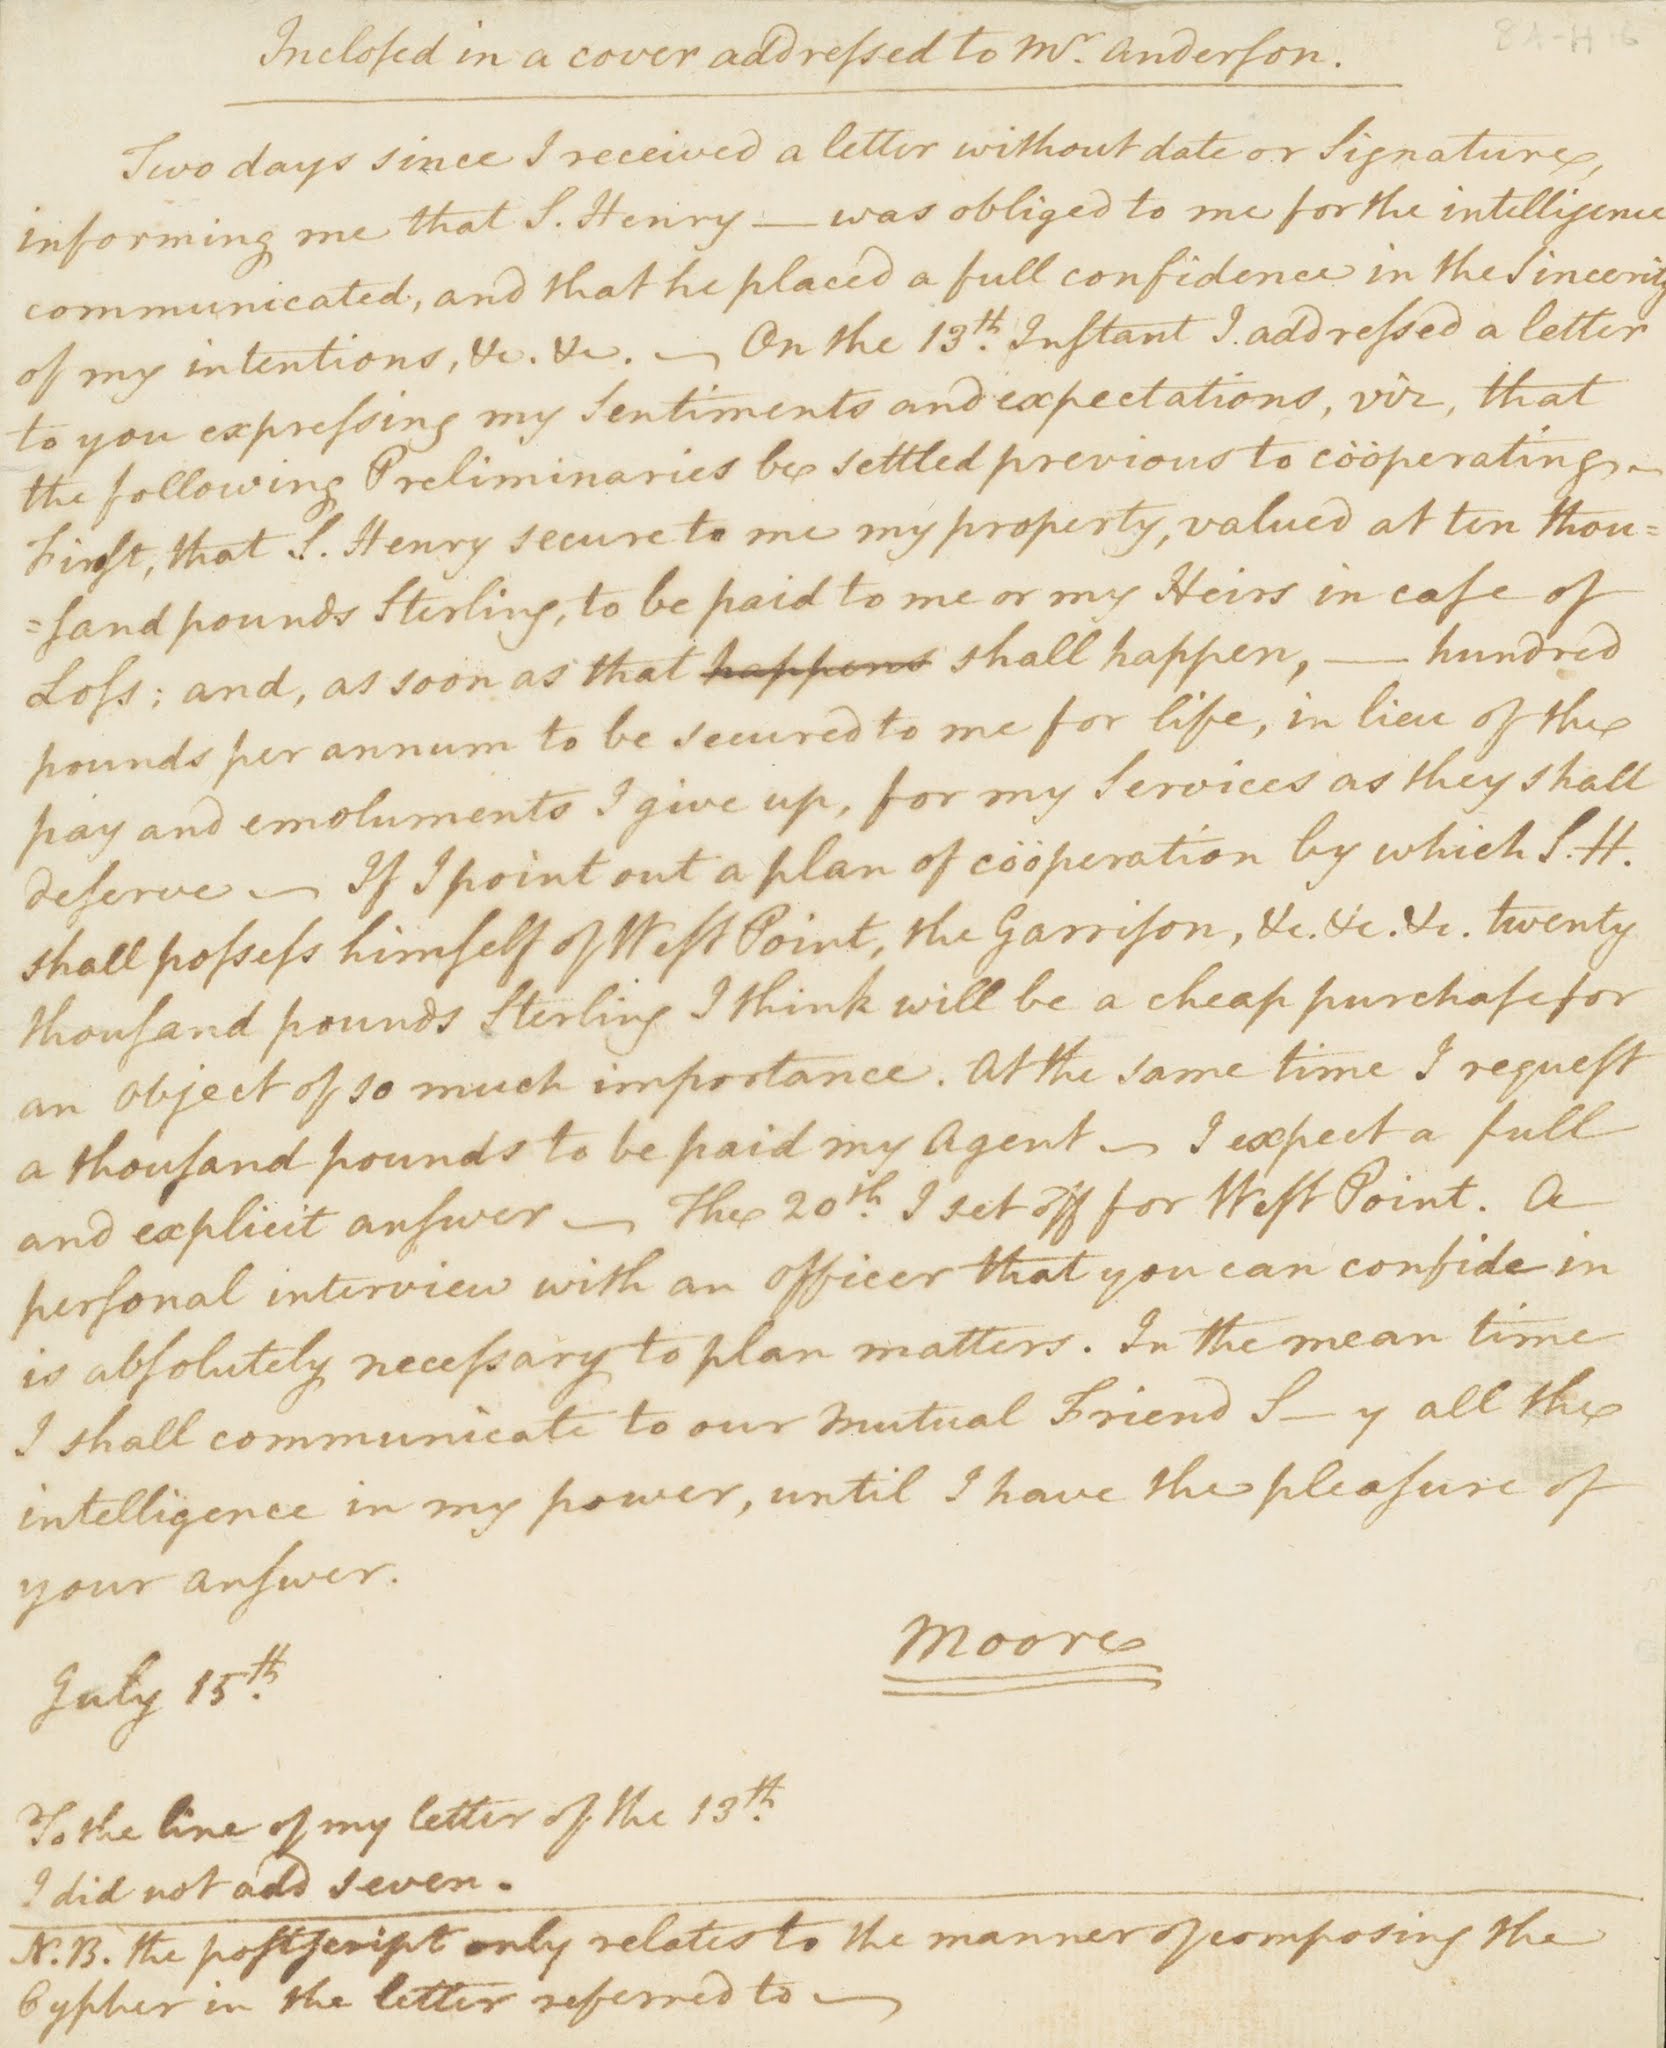 8A-H-16
Inclosed in a cover addressed to Mr. Anderson.
Two days since I received a letter without date or Signature,
informing me that S. Henry — was obliged to me for the intelligence
communicated, and that he placed a full confidence in the Sincerity
of my intentions, &c. &c. — On the 13th. Instant I addressed a letter
to you expressing my Sentiments and expectations, viz, that
the following Preliminaries be settled previous to cööperating. —
First, that S. Henry secure to me my property, valued at ten thou=
=sand pounds Sterling, to be paid to me or my Heirs in case of
Loss; and, as soon as that happens shall happen, — hundred
pounds per annum to be secured to me for life, in lieu of the
pay and emoluments I give up, for my Services as they shall
deserve — If I point out a plan of cööperation by which S. H.
shall possess himself of West Point, the Garrison, &c. &c. &c. twenty
thousand pounds Sterling I think will be a cheap purchase for
an object of so much importance. At the same time I request
a thousand pounds to be paid my Agent — I expect a full
and explicit answer — The 20th. I set off for West Point. A
personal interview with an officer that you can confide in
is absolutely necessary to plan matters. In the mean time
I shall communicate to our Mutual Friend S—y all the
intelligence in my power, until I have the pleasure of
your answer.
Moore
July 15th.
To the line of my letter of the 13th.
I did not add seven.
N.B. the postscript only relates to the manner of composing the
Cypher in the letter referred to —